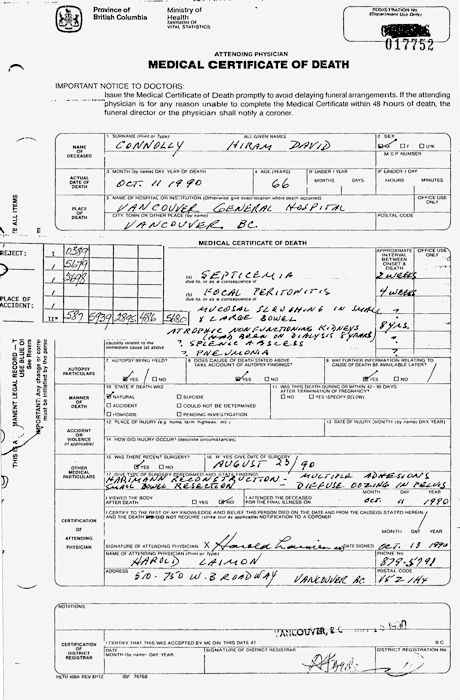 Province of
British Columbia
Ministry of
Health
DIVISION OF
VITAL STATISTICS
REGISTRATION No
(Department Use Only)
017752
ATTENDING PHYSICIAN
MEDICAL CERTIFICATE OF DEATH
IMPORTANT NOTICE TO DOCTORS:
Issue the Medical Certificate of Death promptly to avoid delaying funeral arrangements. If the attending
physician is for any reason unable to complete the Medical Certificate within 48 hours of death, the
funeral director or the physician shall notify a coroner.
NAME
OF
DECEASED
1 SURNAME (Print or Type)
ALL GIVEN NAMES
2 SEX
CONNOLLY
HIRAM DAVID
M S P NUMBER
ACTUAL
DATE OF
DEATH
3 MONTH (by name) DAY, YEAR OF DEATH
4 AGE (YEARS)
IF UNDER 1 YEAR
IF UNDER 1 DAY
OCT. 11 1990
66
MONTHS DAYS
HOURS MINUTES
PLACE
OF
DEATH
5 NAME OF HOSPITAL OR INSTITUTION (Otherwise give exact location where death occurred)
OFFICE USE
ONLY
VANCOUVER GENERAL HOSPITAL
CITY, TOWN OR OTHER PLACE (by name)
POSTAL CODE
VANCOUVER, BC.
TE ALL ITEMS
MEDICAL CERTIFICATE OF DEATH
APPROXIMATE
INTERVAL
BETWEEN
ONSET &
DEATH
OFFICE USE
ONLY
REJECT:
I 0389
I 5679
I 5698
PLACE OF
ACCIDENT:
(a) SEPTICEMIA
2 WEEKS
due to, or as a consequence of
(b) FOCAL PERITONITIS
4 WEEKS
due to, or as a consequence of
MUCOSAL SLOUGHING IN SMALL
& LARGE BOWEL
?
II* 587 5939 2896 486 5680
ATROPHIC NON FUNCTIONING KIDNEYS
8 YRS.
(HAD BEEN ON DIALYSIS 8 YEARS)
causally related to the
immediate cause (a) above
? SPLENIC ABSCESS
?
? PNEUMONIA
?
AUTOPSY
PARTICULARS
7 AUTOPSY BEING HELD?
8 DOES CAUSE OF DEATH STATED ABOVE
TAKE ACCOUNT OF AUTOPSY FINDINGS?
9 MAY FURTHER INFORMATION RELATING TO
CAUSE OF DEATH BE AVAILABLE LATER?
YES NO
YES NO
YES NO
MANNER
OF
DEATH
10 STATE IF DEATH WAS
NATURAL SUICIDE
ACCIDENT COULD NOT BE DETERMINED
HOMICIDE PENDING INVESTIGATION
11 WAS THIS DEATH DURING OR WITHIN 42 - 90 DAYS
AFTER TERMINATION OF PREGNANCY?
NO YES (SPECIFY BELOW)
ACCIDENT
OR
VIOLENCE
(if applicable)
12 PLACE OF INJURY (e.g. home, farm, highway, etc.)
13 DATE OF INJURY (MONTH (by name) DAY, YEAR)
14 HOW DID INJURY OCCUR? (describe circumstances)
OTHER
MEDICAL
PARTICULARS
15 WAS THERE RECENT SURGERY?
YES NO
16 IF YES GIVE DATE OF SURGERY
AUGUST 23/90
17 GIVE TYPE OF SURGERY PERFORMED AND STATE FINDINGS
HARTMANN RECONSTRUCTION - MULTIPLE ADHESIONS
SMALL BOWEL RESECTION - DIFFUSE OOZING IN PELVIS
MONTH DAY YEAR
I VIEWED THE BODY
AFTER DEATH
YES NO
I ATTENDED THE DECEASED
FOR THE FINAL ILLNESS ON
OCT. 11 1990
THIS IS A
MANENT LEGAL RECORD
USE BLUE OR
CERTIFICATION
OF
ATTENDING
PHYSICIAN
I CERTIFY TO THE BEST OF MY KNOWLEDGE AND BELIEF THIS PERSON DIED ON THE DATE AND FROM THE CAUSE(S) STATED HEREIN,
AND THE DEATH DID/DID NOT REQUIRE (strike out as applicable) NOTIFICATION TO A CORONER
MONTH DAY YEAR
SIGNATURE OF ATTENDING PHYSICIAN X
DATE SIGNED OCT. 13 1990
NAME OF ATTENDING PHYSICIAN (Print or Type)
PHONE No
HAROLD LAIMON
879-5791
ADDRESS
POSTAL CODE
510-750 W. BROADWAY VANCOUVER BC
V5Z 1H4
NOTATIONS
VANCOUVER, B.C.
CERTIFICATION
OF
DISTRICT
REGISTRAR
I CERTIFY THAT THIS WAS ACCEPTED BY ME ON THIS DATE AT
B C
DATE
MONTH (by name) DAY, YEAR
SIGNATURE OF DISTRICT REGISTRAR
DISTRICT REGISTRATION No
HLTH 406A REV 87/12